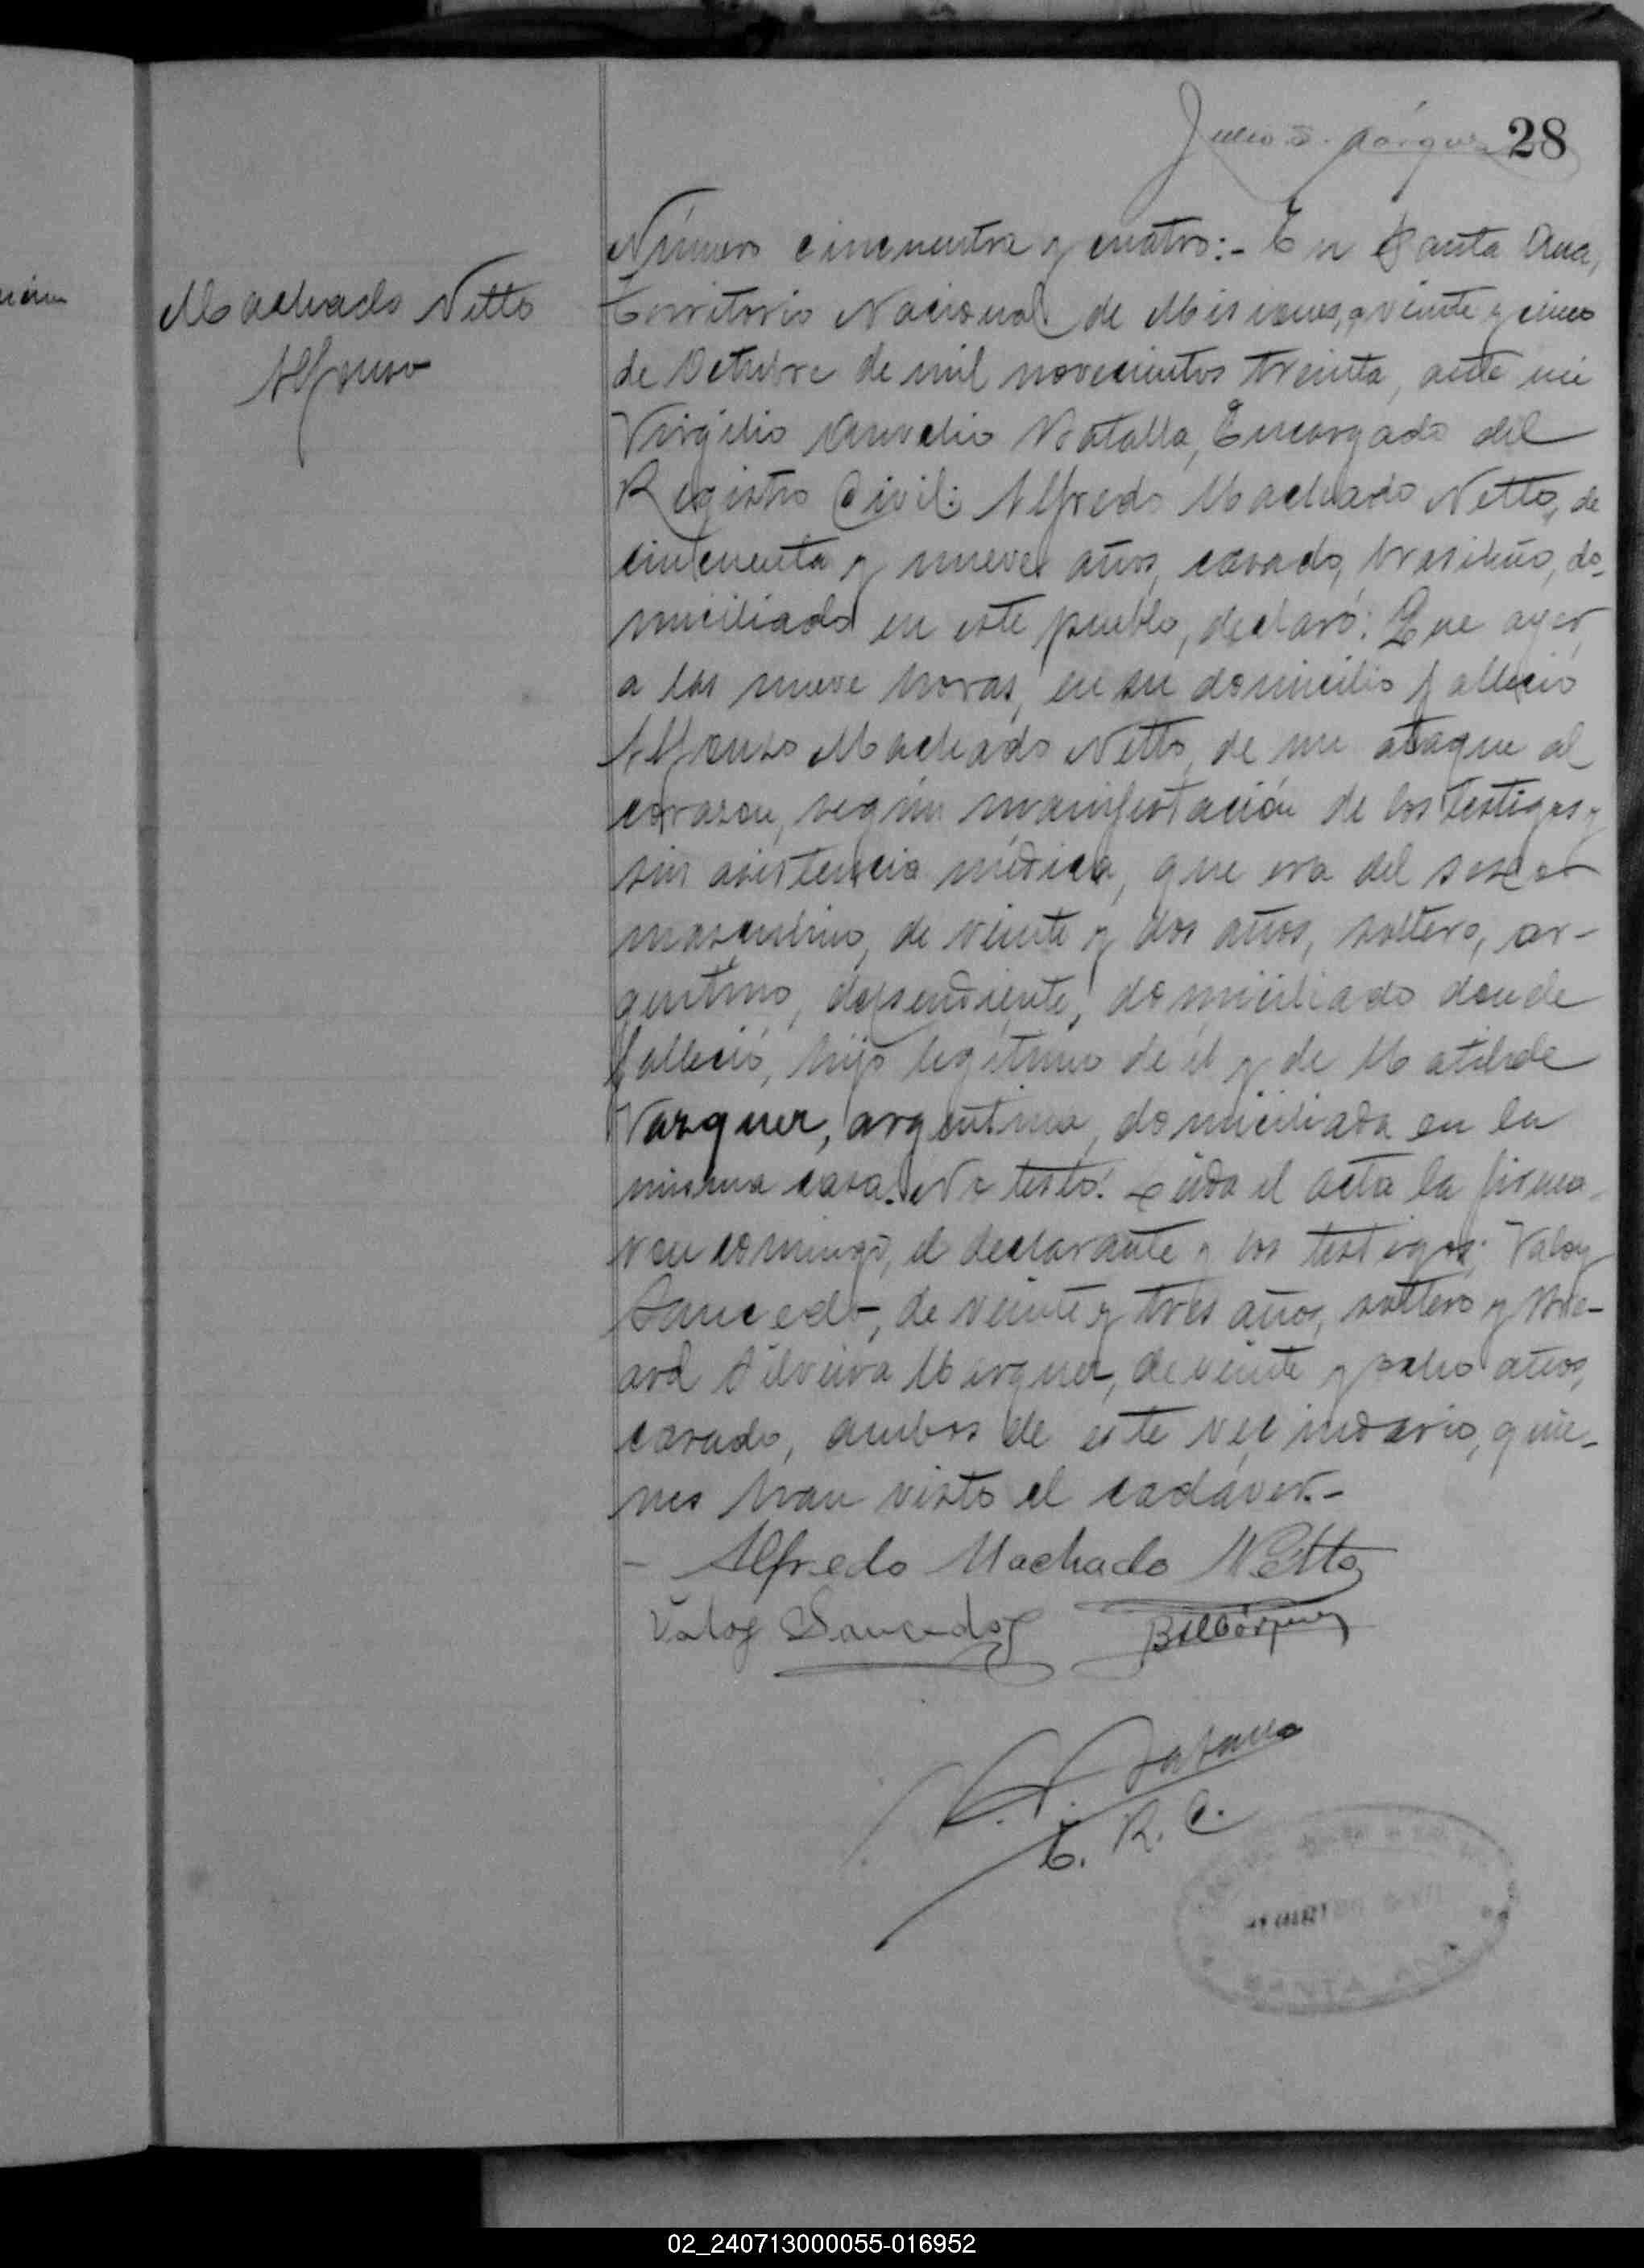 28
Machado Netto
Alfonso
Número cincuenta y cuatro:- En Santa Ana,
Territorio Nacional de Misiones, a veinte y cinco
de Octubre de mil novecientos treinta, ante mi
Virgilio Aurelio Batalla, Encargado del
Registro Civil: Alfredo Machado Netto, de
cincuenta y nueve años, casado, brasileño, do-
miciliado en este pueblo, declaró: Que ayer,
a las nueve horas, en su domicilio falleció
Alfonso Machado Netto, de un ataque al
corazon, según manifestación de los testigos y
sin asistencia médica, que era del sexo
masculino, de veinte y dos años, soltero, ar-
gentino, dependiente, domiciliado donde
falleció, hijo legítimo de él y de Matilde
Vazquez, argentina, domiciliada en la
misma casa. No testó. Leida el acta la firma-
ron conmigo, el declarante y los testigos: Valoy
Saucedo, de veinte y tres años, soltero y
Silveira Marquez, de veinte y ocho años,
casado, ambos de este vecindario, quie-
nes han visto el cadáver.-
- Alfredo Machado Netto
Valoy Saucedo
V. A. Batalla
E. R. C.
02_240713000055-016952